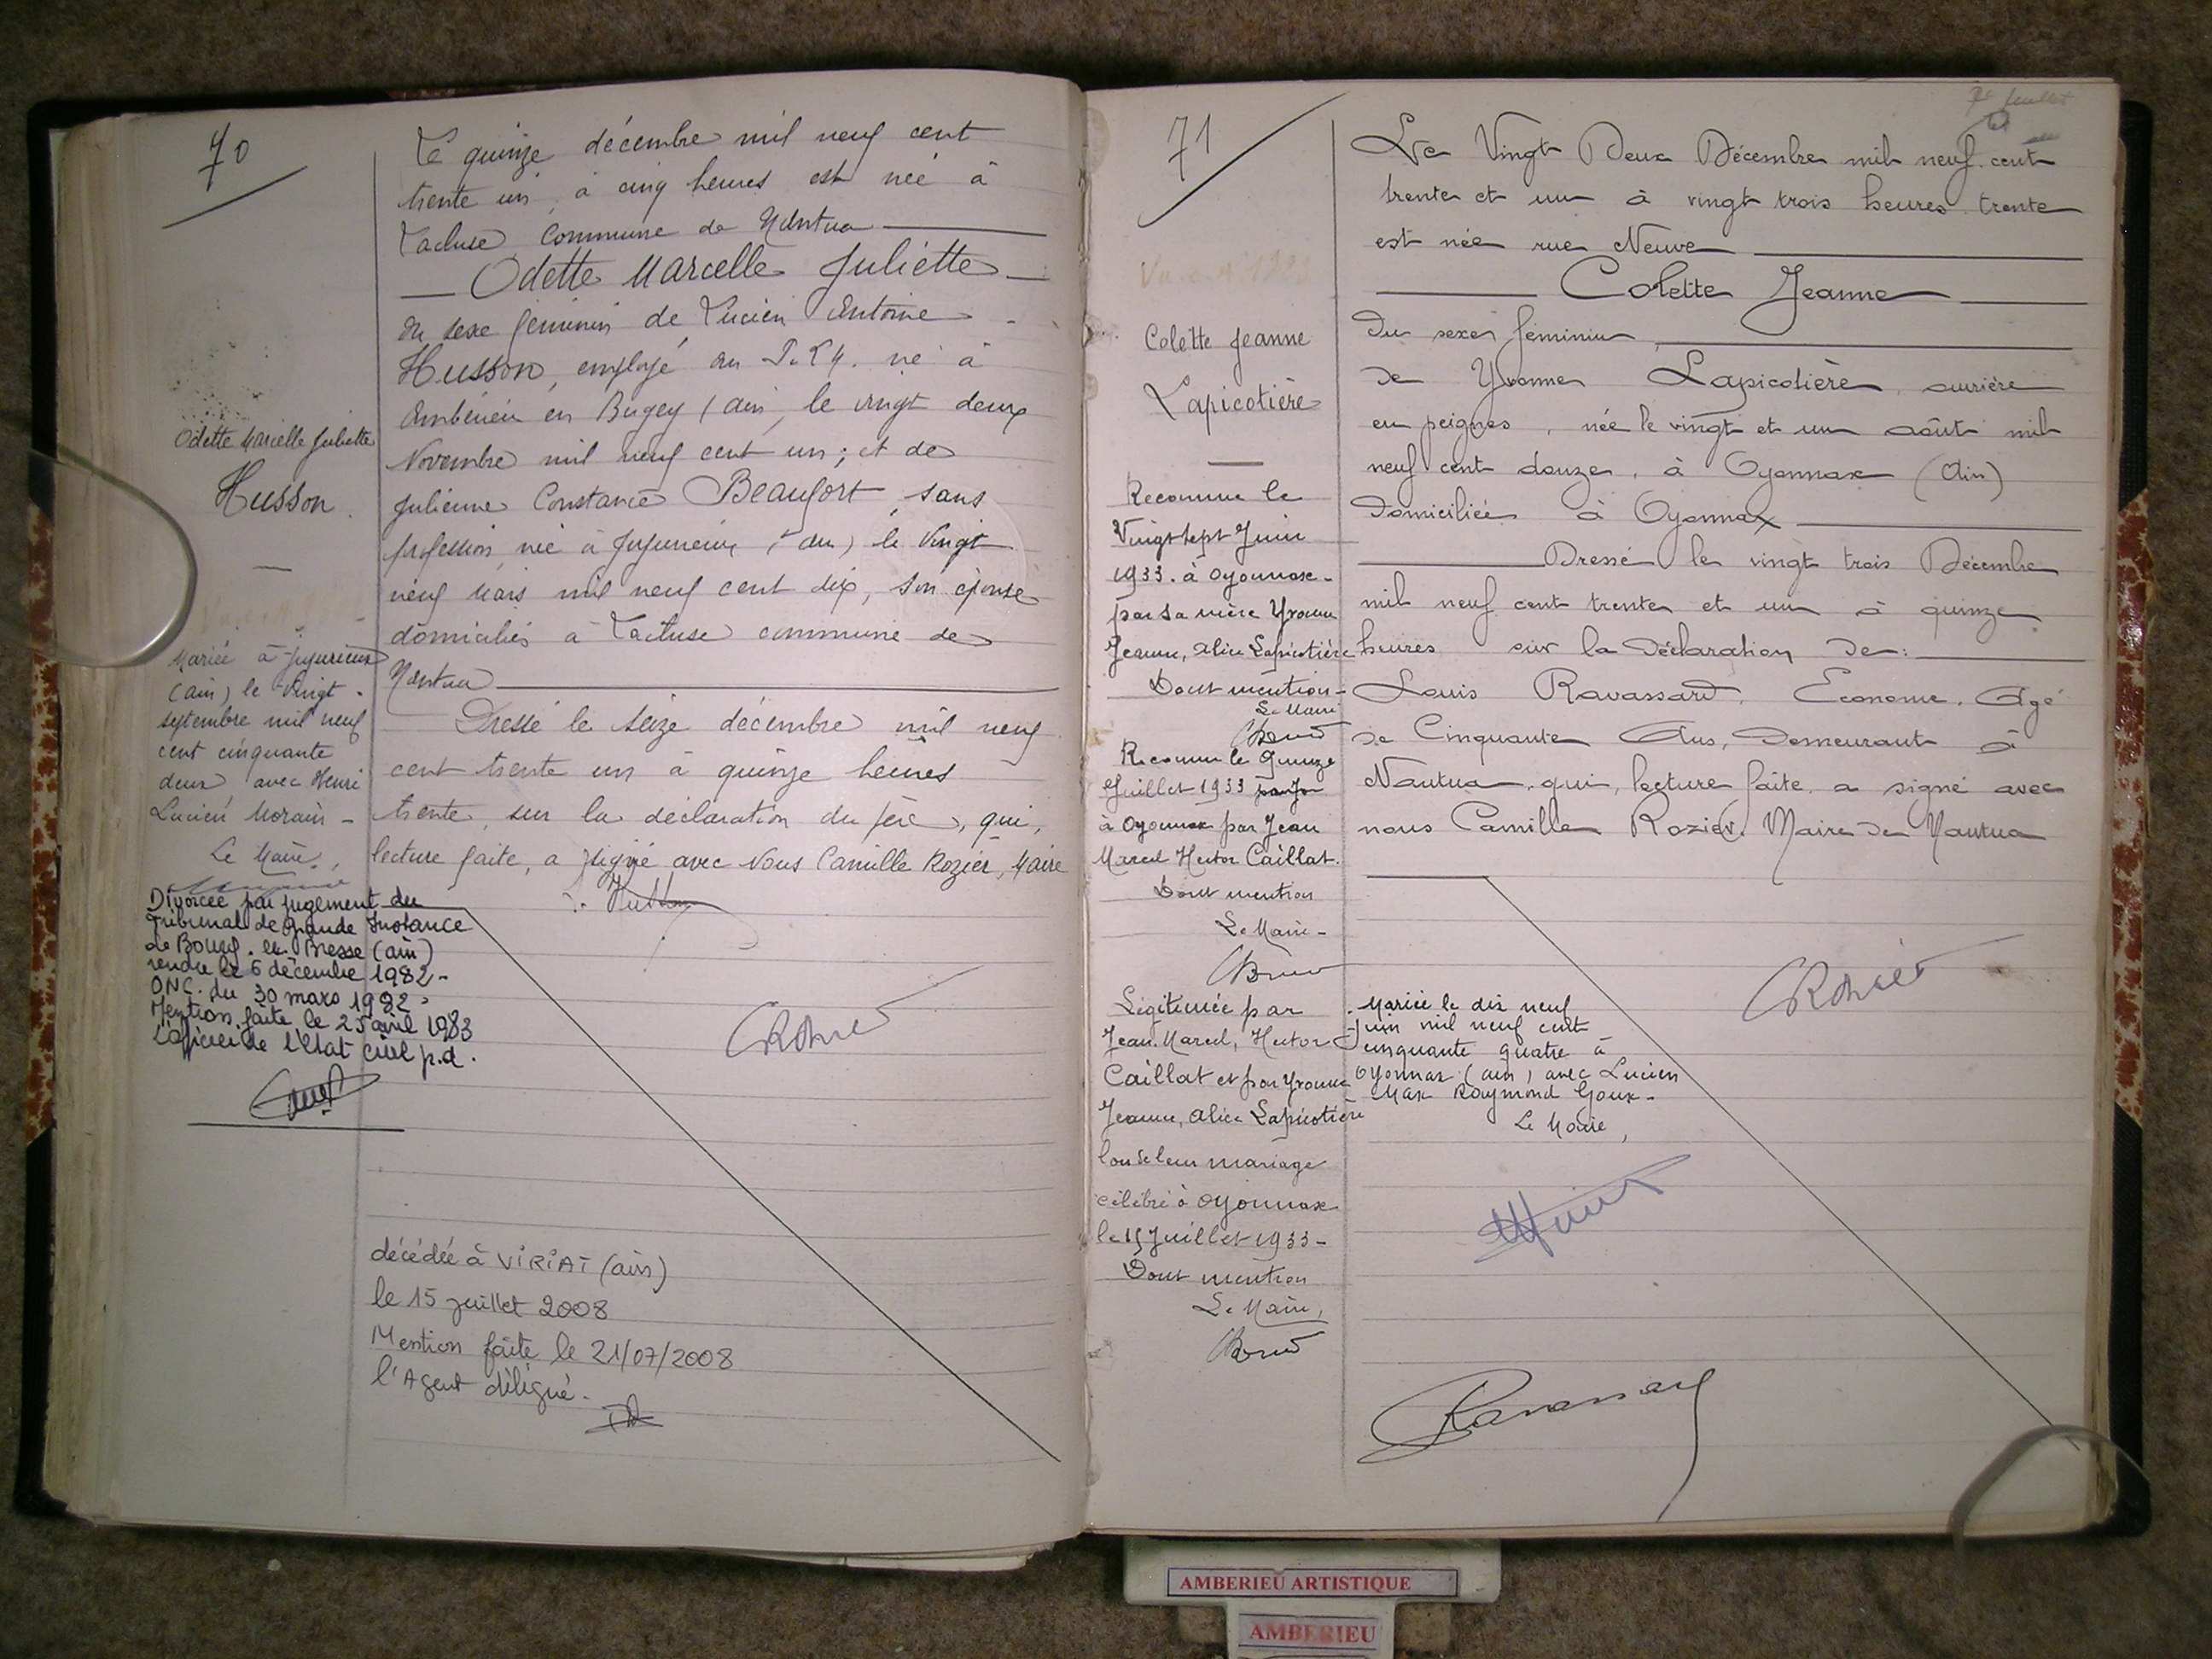 70
Odette Marcelle Juliette
Husson
Mariée à Jujurieux
(ain) le vingt
septembre mil neuf
cent cinquante
deux avec Henri
Lucien Morain -
Le Maire,
Divorcée par jugement du
Tribunal de Grande Instance
de Bourg. en. Bresse (ain)
rendu le 6 décembre 1982 -
ONC. du 30 mars 1982 -
Mention faite le 25 avril 1983
L'officier de l'Etat civil p.d.
Le quinze décembre mil neuf cent
trente un, à cinq heures est née à
Lacluse commune de Nantua
Odette Marcelle Juliette
du sexe féminin de Lucien Antoine
Husson, employé au né à
Ambérieu en Bugey (ain, le vingt deux
Novembre mil neuf cent un ; et de
Julienne Constance Beaufort, sans
profession, née à Jujurieux, le vingt
neuf Mars mil neuf cent dix, son épouse
domiciliés à Lacluse commune de
Nantua
Dressé le seize décembre mil neuf
cent trente un à quinze heures
trente, sur la déclaration du père, qui,
lecture faite, a signé avec Nous Camille Rozier, Maire
décédée à VIRIAT (ain)
le 15 juillet 2008
Mention faite le 21/07/2008
l'Agent délégué.
71
Colette Jeanne
Lapicotière
Reconnue le
Vingt sept Juin
1933. à Oyonnax -
par sa mère Yvonne
Jeanne, Alice Lapicotière
Dont mention -
Le Maire
Reconnue le Quinze
Juillet 1933
à Oyonnax par Jean
Marcel Hector Caillat.
Dont mention
Le Maire -
Légitimée par
Jean. Marcel, Hector
Caillat et par Yvonne
Jeanne, Alice Lapicotière
lors de leur mariage
célébré à Oyonnax
le 15 Juillet 1933 -
Dont mention
Le Maire,
Le Vingt Deux Décembre mil neuf cent
trente et un à vingt trois heures trente
est née rue Neuve
Colette Jeanne
du sexe féminin
de Yvonne Lapicotière, ouvrière
en peignes, née le vingt et un août mil
neuf cent douze, à Oyonnax (Ain)
domiciliée à Oyonnax
Dressé le vingt trois Décembre
mil neuf cent trente et un à quinze
heures sur la déclaration de :
Louis Ravassard, Econome, Agé
de Cinquante Ans, demeurant à
Nantua, qui, lecture faite, a signé avec
nous Camille Rozier, Maire de Nantua
Mariée le dix neuf
juin mil neuf cent
cinquante quatre à
Oyonnax (ain) avec Lucien
Max Raymond Goux -
Le Maire,
Ravassard
AMBERIEU ARTISTIQUE
AMBERIEU